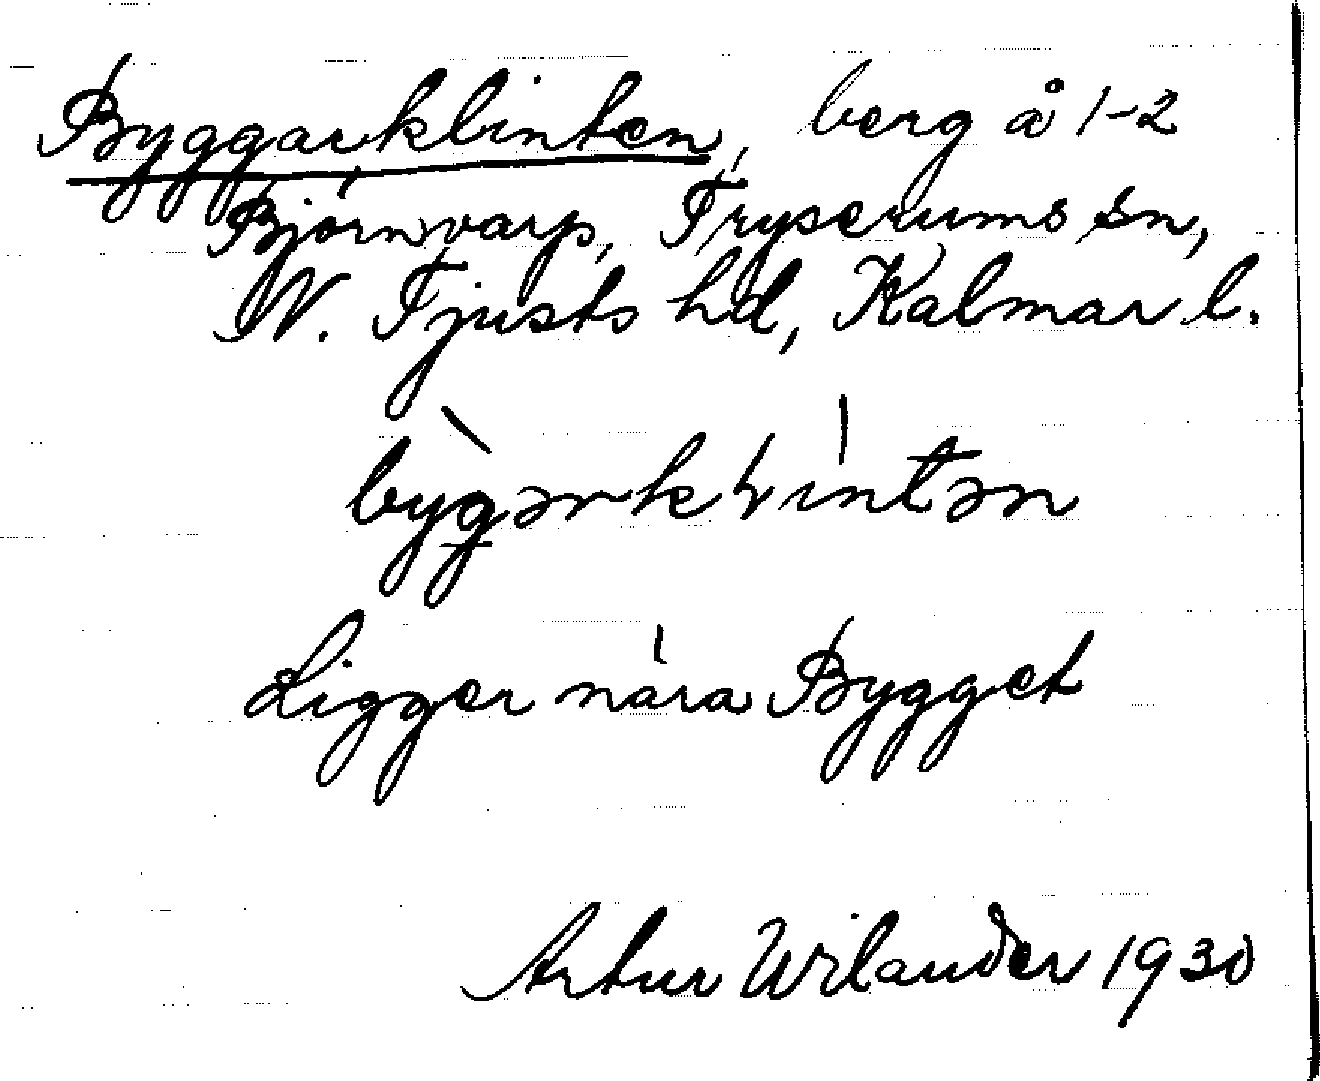 Byggarklinten, berg å 1-2
Björnvarp, Tryserums sn,
N. Tjusts hd, Kalmar l.
Ligger nära Bygget
Artur Wilander 1930